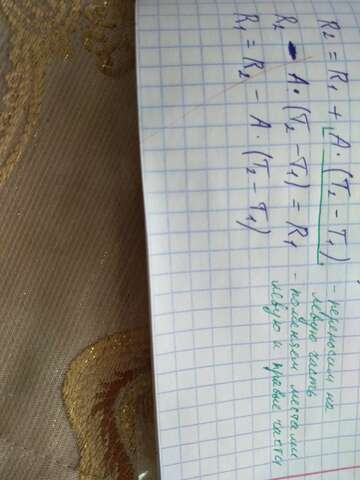 R2 = R1 + A · (T2 - T1) - переносим на левую часть
R2 - A · (T2 - T1) = R1 - поменяем местами левую и правые части
R1 = R2 - A · (T2 - T1)